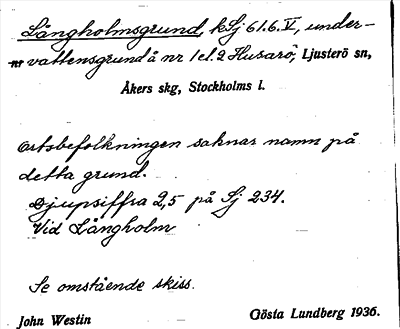 Långholmsgrund, kSj 61.6.V, under-
vattensgrund å nr 1 el. 2 Husarö, Ljusterö sn,
Åkers skg, Stockholms l.
Ortsbefolkningen saknar namn på
detta grund.
Djupsiffra 2,5 på Sj 234.
Vid Långholm
Se omstående skiss.
John Westin Gösta Lundberg 1936.